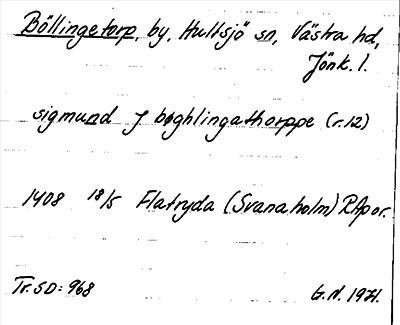 Böllingetorp, by, Hultsjö sn, Västra hd,
Jönk. l.
sigmund J bøghlingathorppe (r. 12)
1408 18/5 Flatryda (Svanaholm) RAp or.
Tr. SD: 968
G. N. 1971.